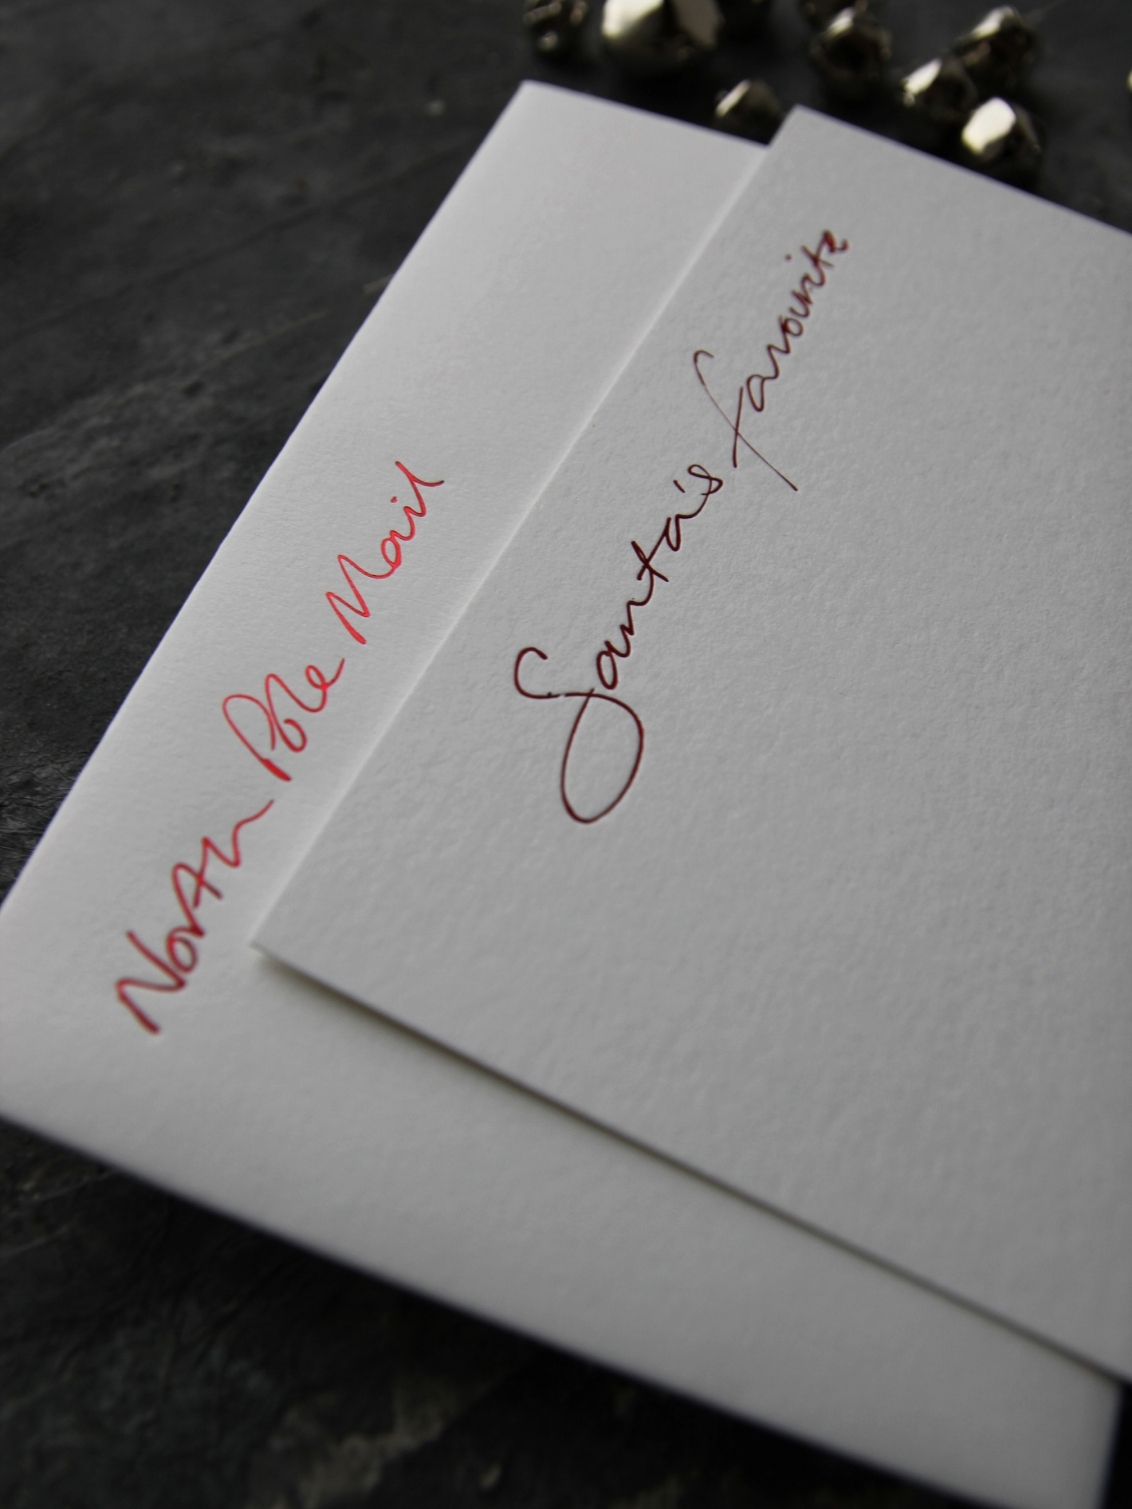 North Pole Mail
Santa's favourite